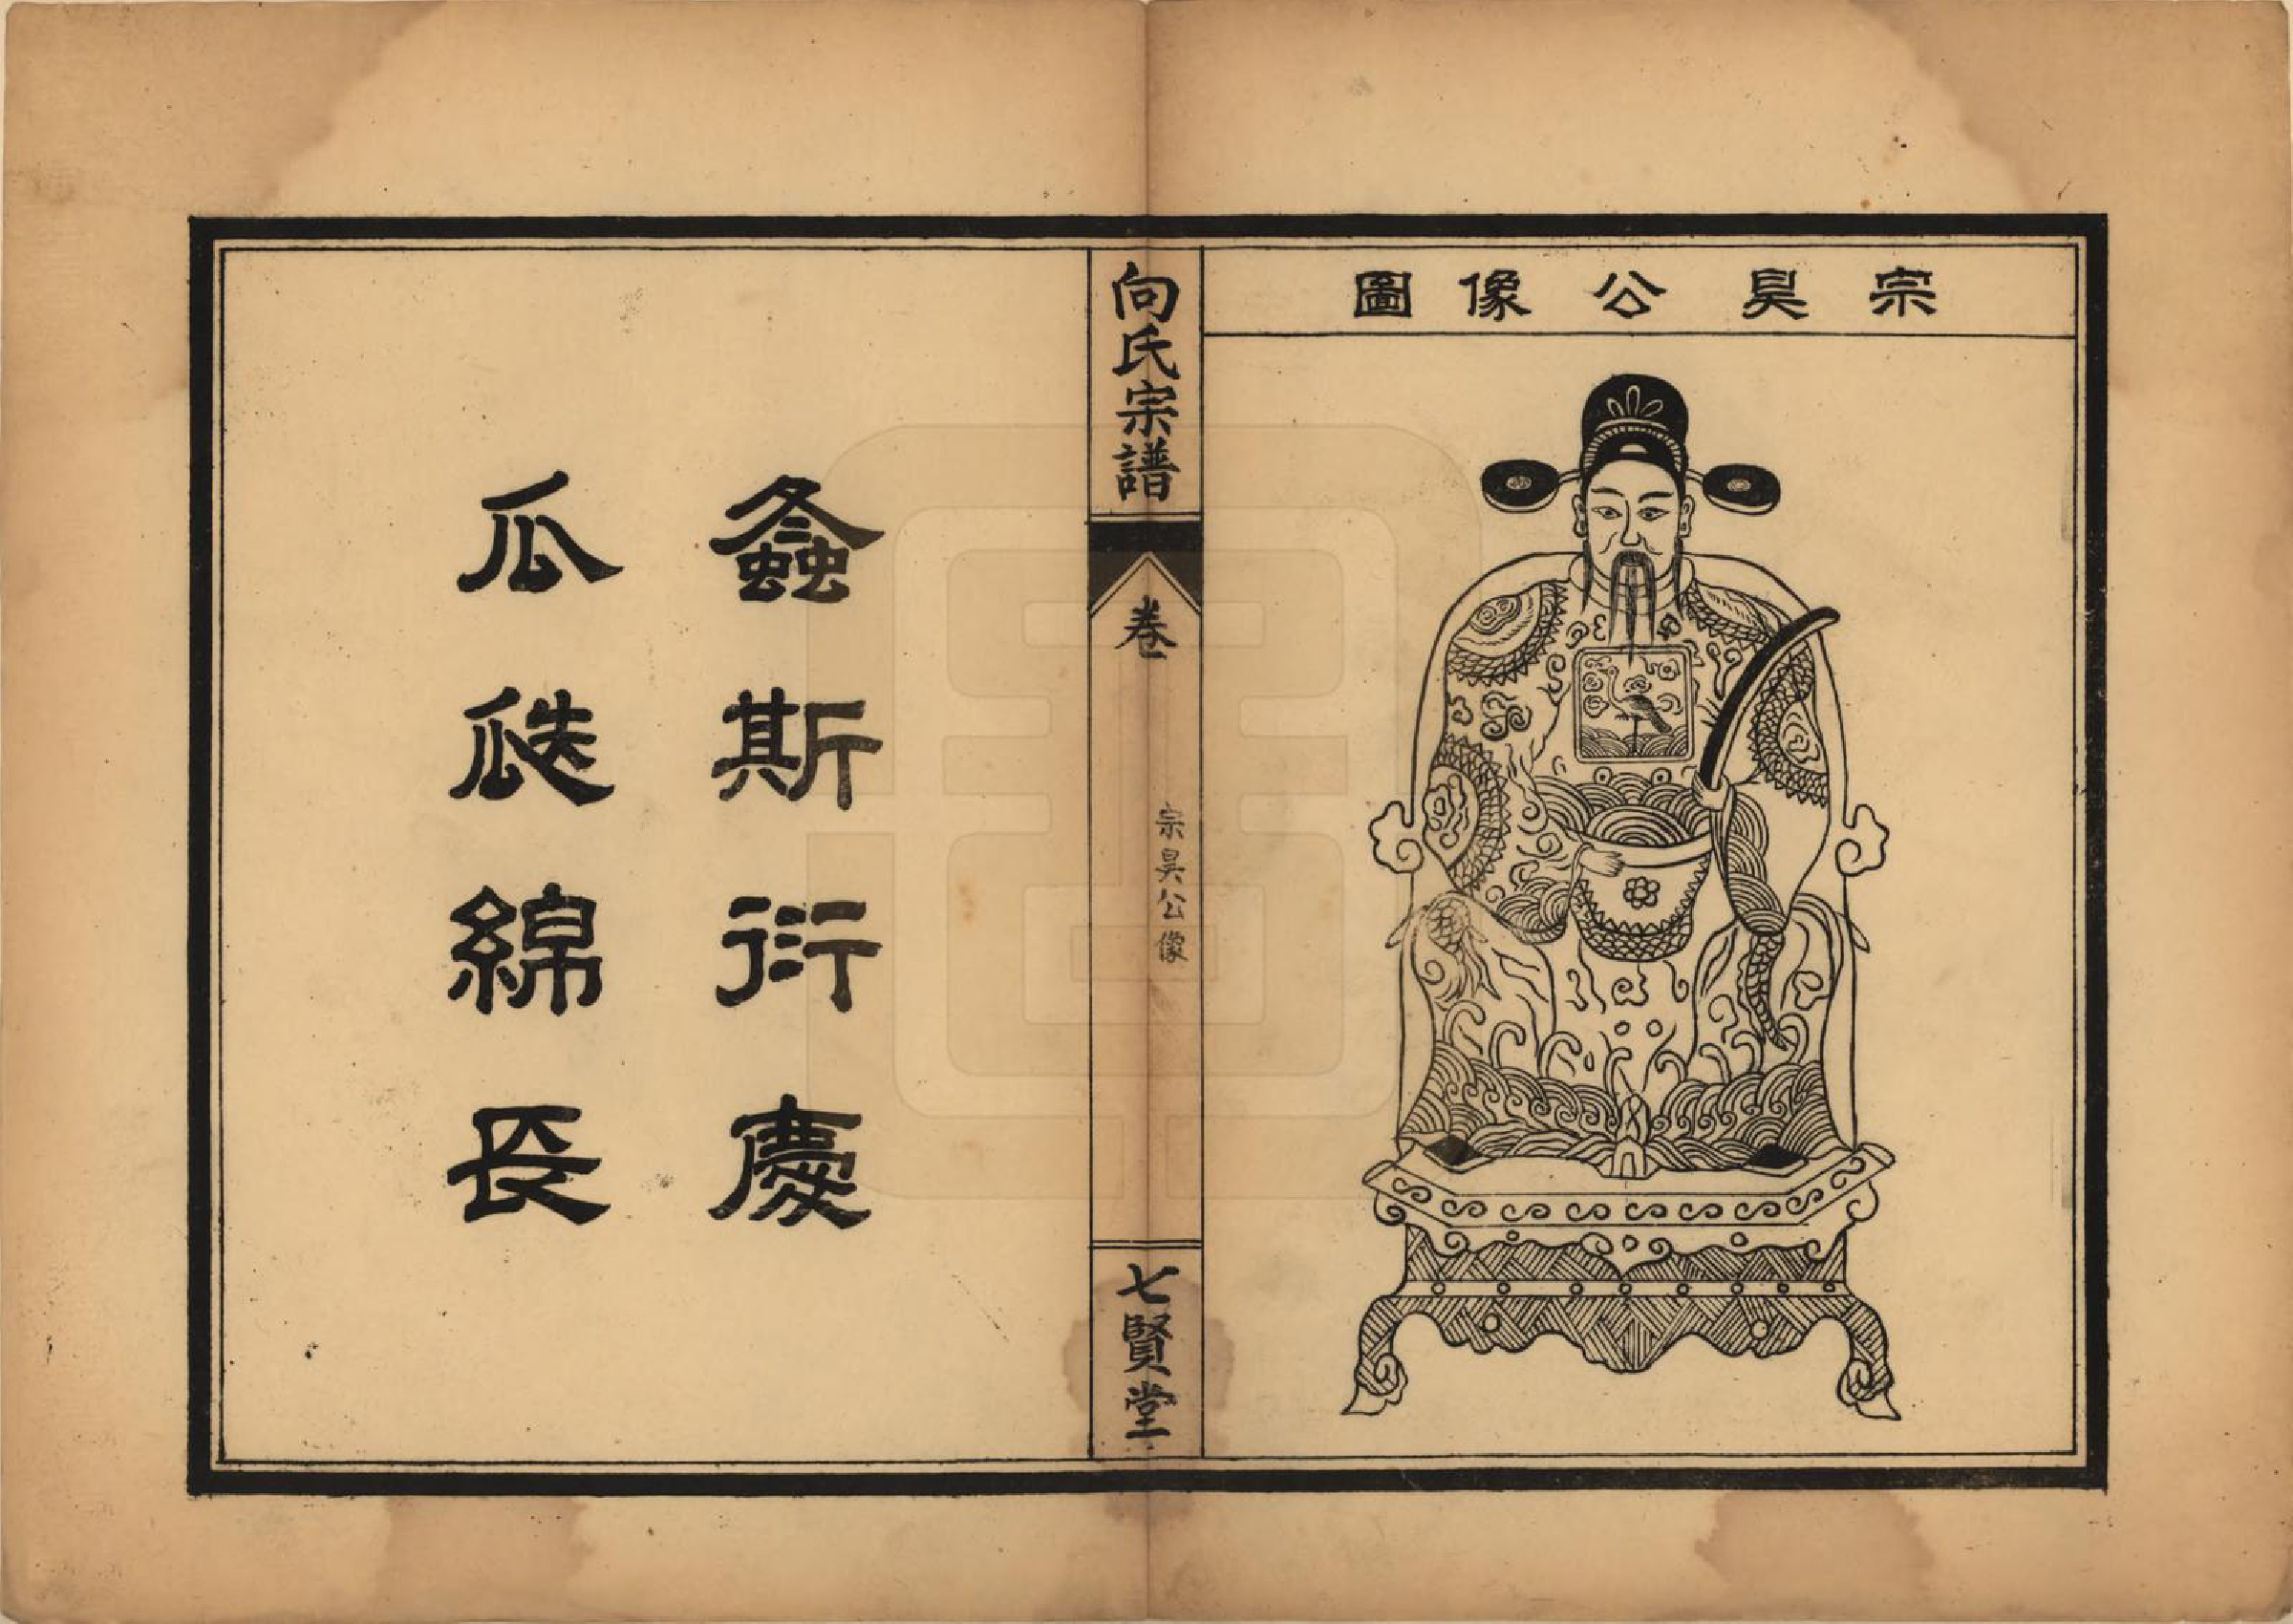 宗昊公像圖
向氏宗譜
卷一
宗昊公像
七賢堂
螽斯衍慶
瓜瓞綿長